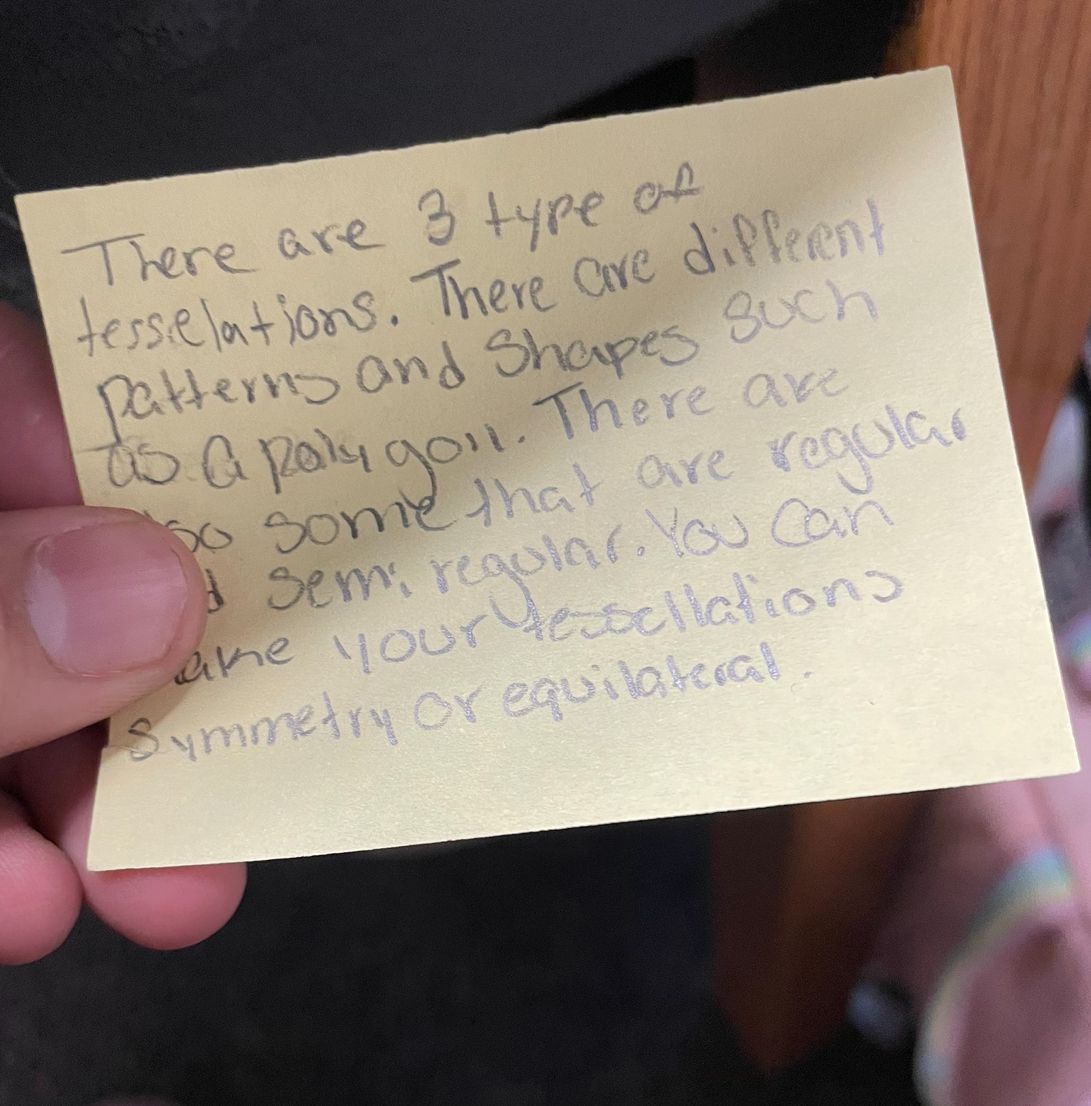 There are 3 type of
tesselations. There are different
patterns and Shapes such
as a polygon. There are
so some that are regular
d semi regular. You can
ake your tessellations
symmetry or equilateral.